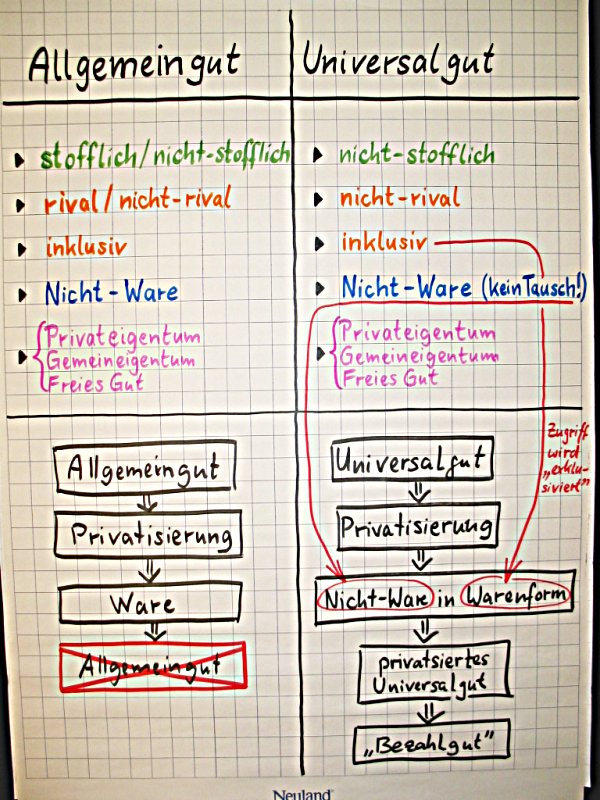 Allgemeingut
stofflich/nicht-stofflich
rival/nicht-rival
inklusiv
Nicht-Ware
Privateigentum
Gemeineigentum
Freies Gut
Allgemeingut
Privatisierung
Ware
Allgemeingut
Universalgut
nicht-stofflich
nicht-rival
inklusiv
Nicht-Ware (kein Tausch!)
Privateigentum
Gemeineigentum
Freies Gut
Zugriff
wird
„exklu-
siviert"
Universalgut
Privatisierung
Nicht-Ware in Warenform
privatsiertes
Universalgut
„Bezahlgut"
Neuland